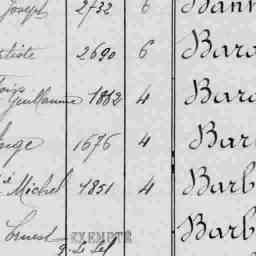 Joseph 2732 6 Bann
tiste 2690 6 Baro
Guillaume 1862 4 Bara
Ange 1676 4 Bar
Michel 1851 4 Barb
Ernest EXEMPTÉ Barb